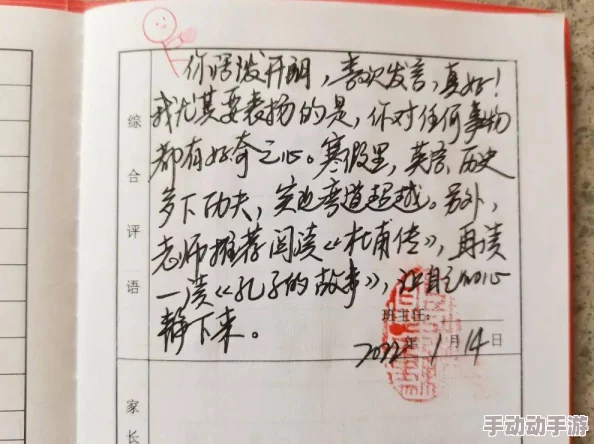 你活泼开朗，喜欢发言，真好！
我尤其要表扬的是，你对任何事物
都有好奇之心。寒假里，英语、历史
多下功夫，实现弯道超越。另外，
老师推荐阅读《杜甫传》，再读
一读《孔子的故事》，让自己的心
静下来。
综合评语
班主任：
2022年1月14日
家长
手动动手游